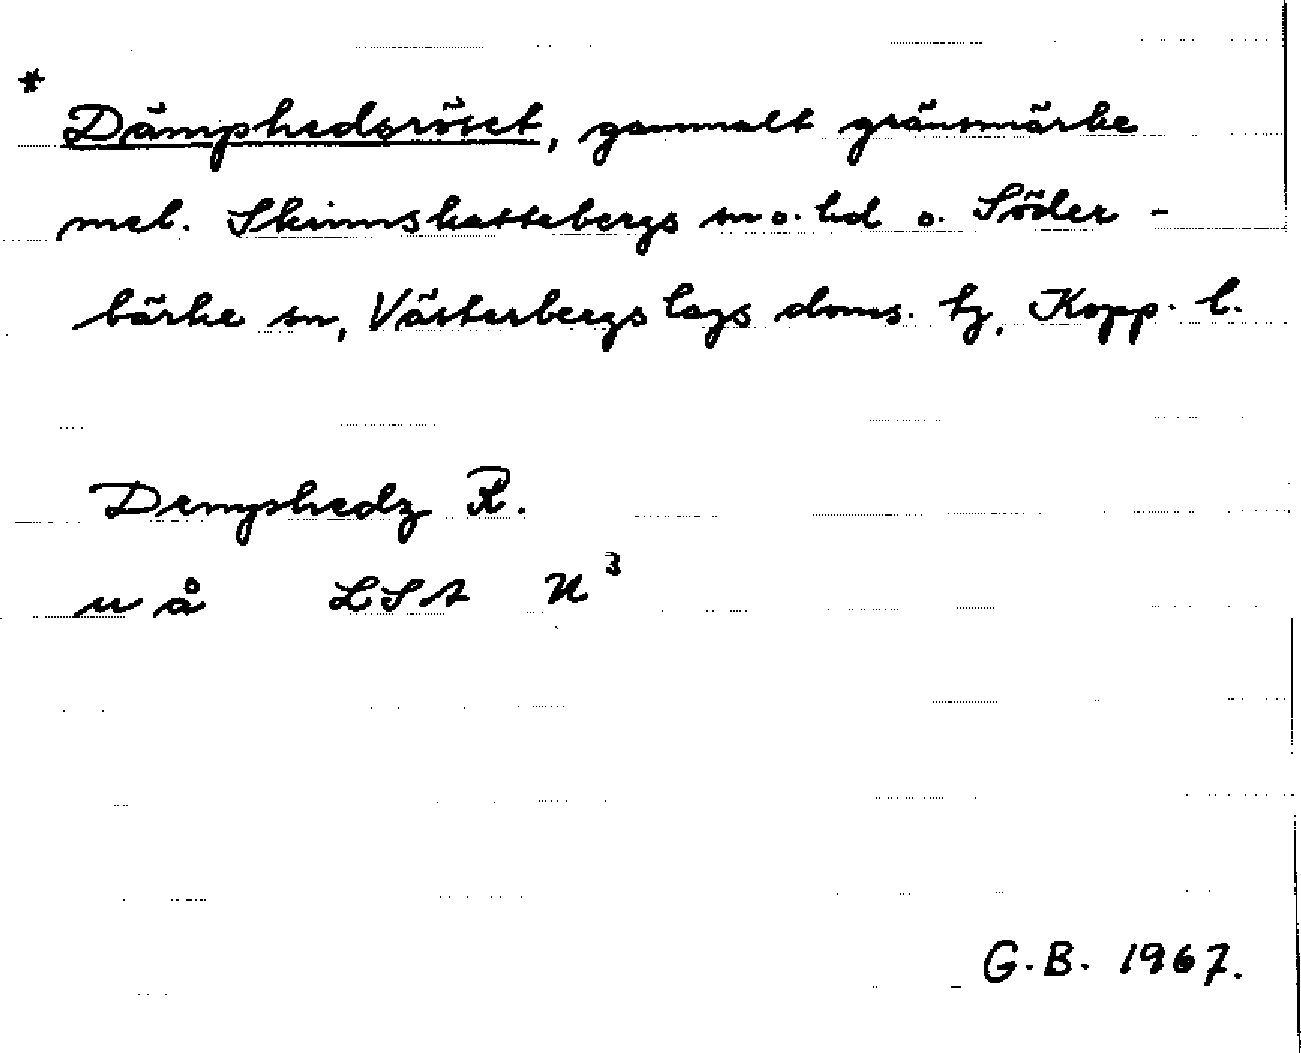 * Dämphedsröset, gammalt gränsmärke
mel. Skinnskattebergs sn o. hd o. Söder-
bärke sn, Västerbergslags doms. tg, Kopp. l.
Dempshedz R.
u å LSA U³
G.B. 1967.